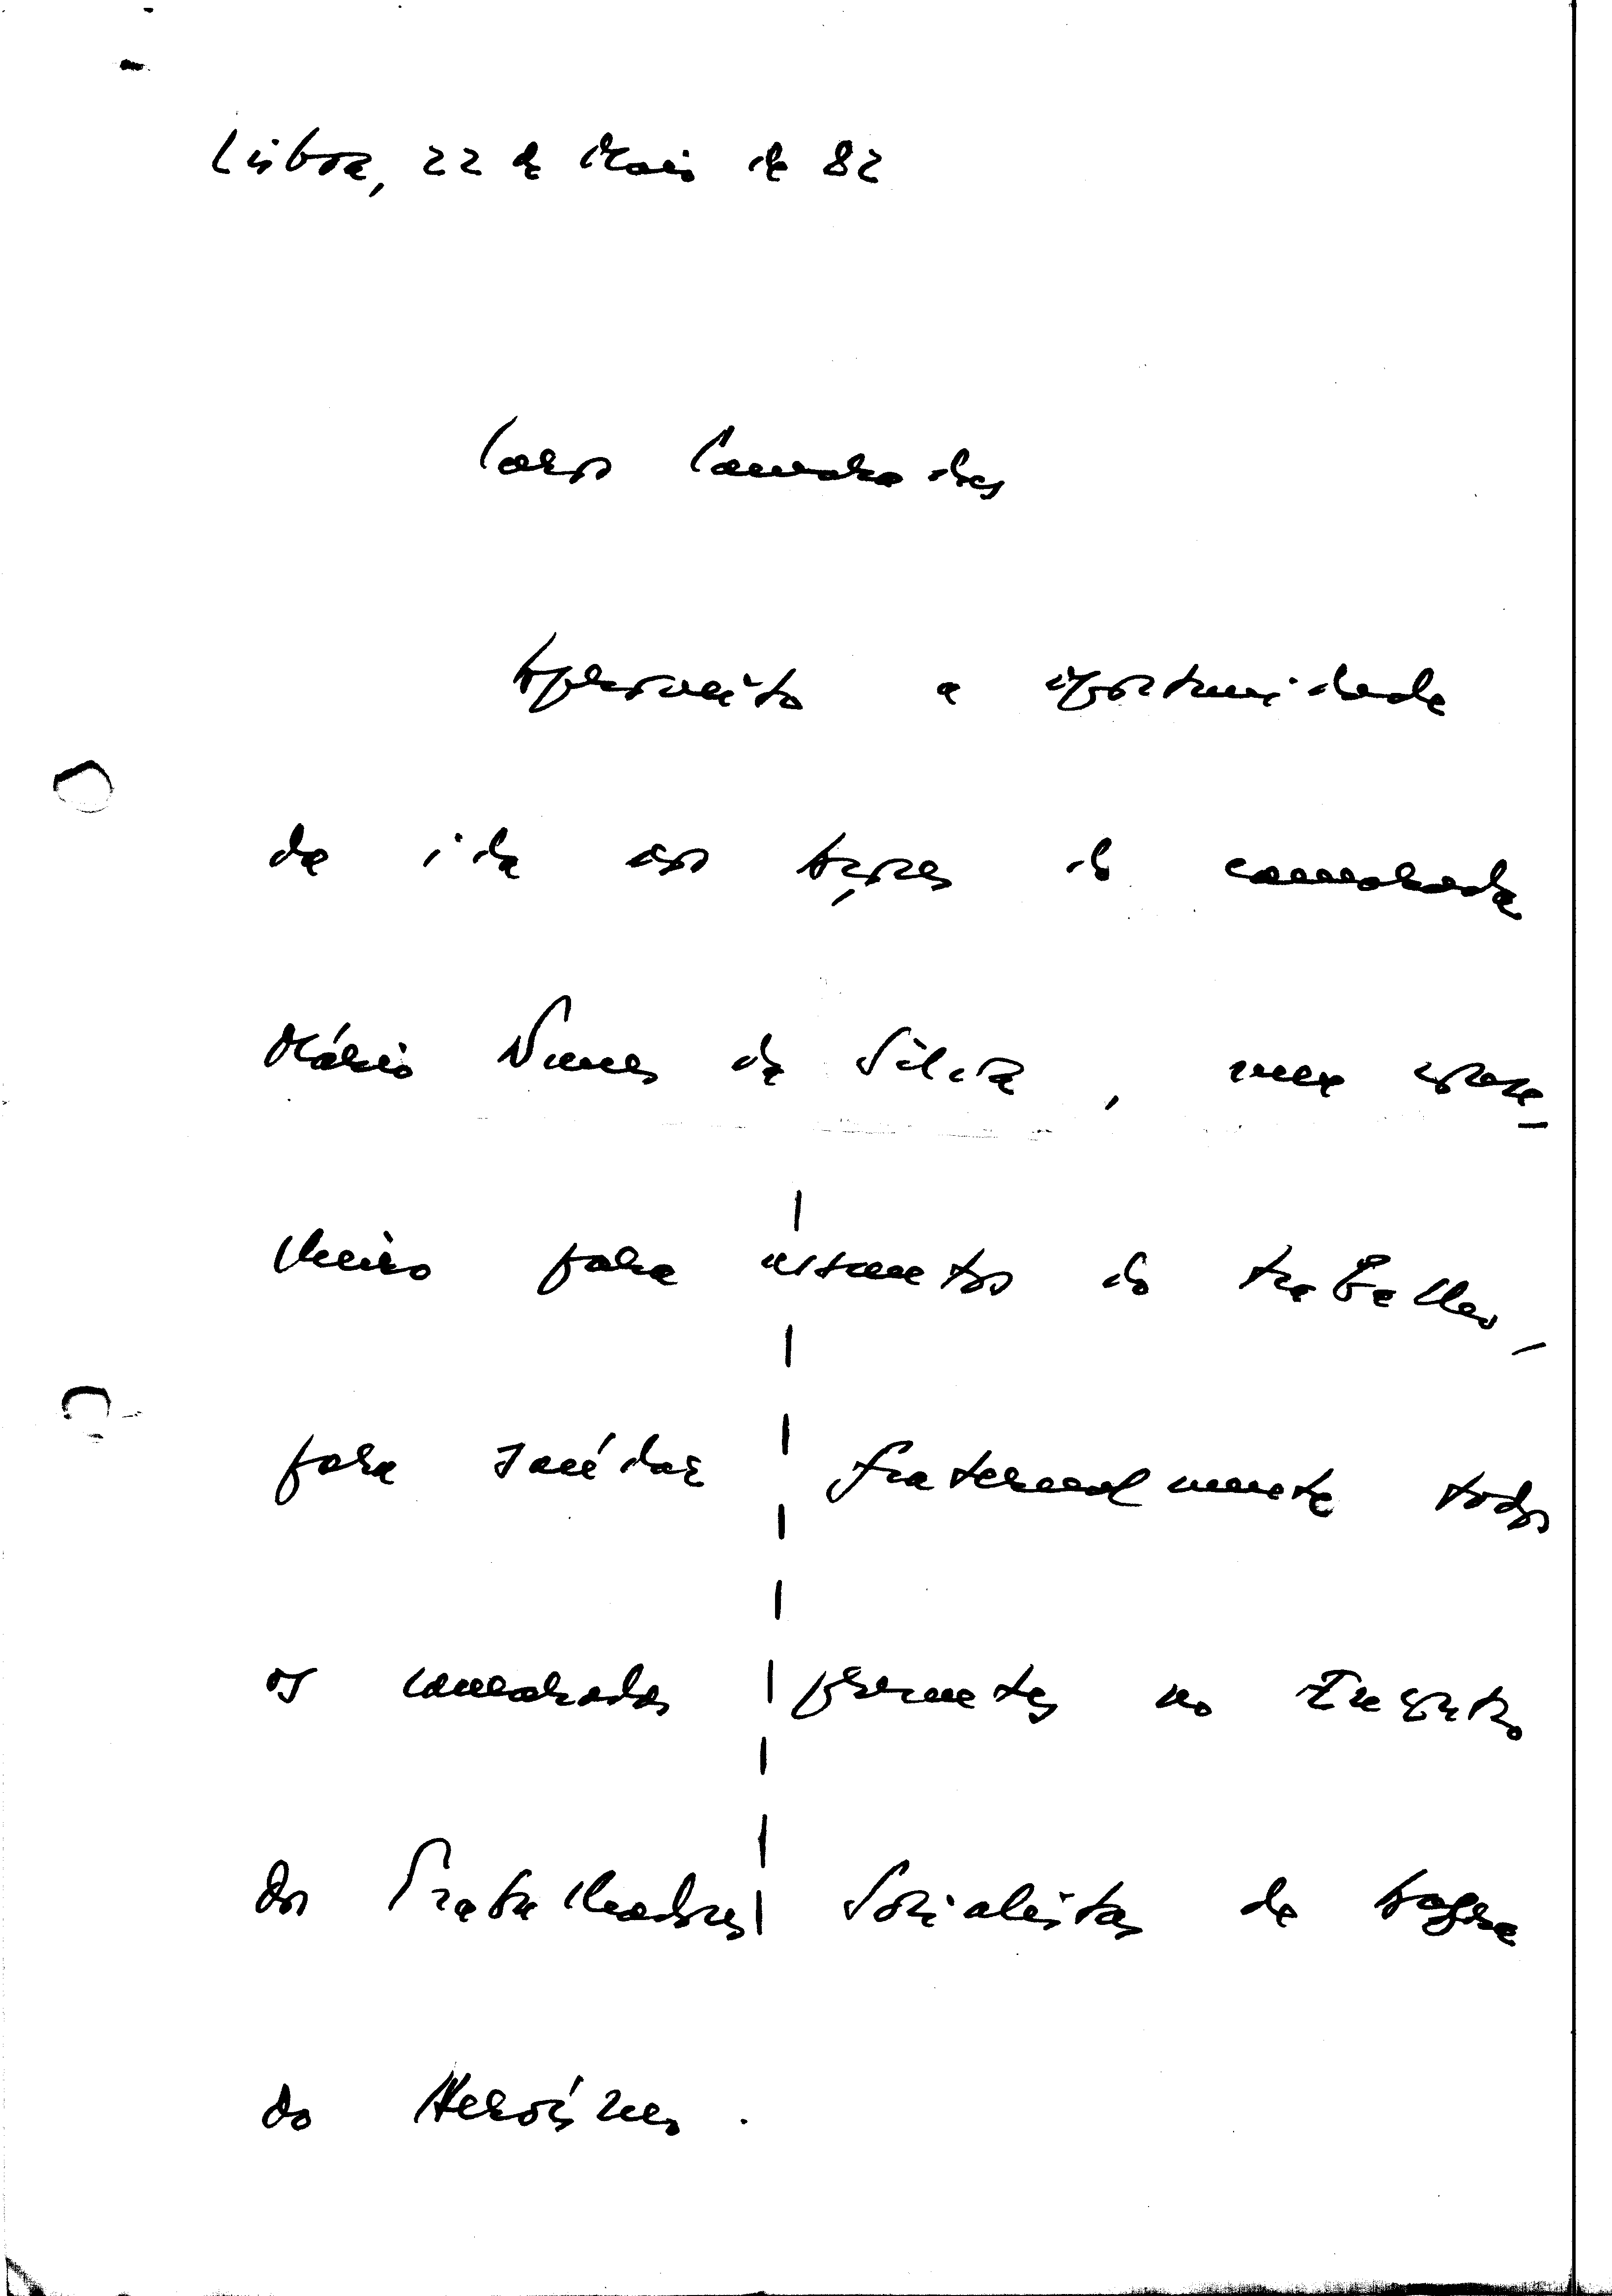 Lisboa, 22 de Maio de 82
Caros Camaradas
Aproveito a oportunidade
da ida aos Açores do camarada
Mário Nunes da Silva, meu compa_
nheiro para assuntos do trabalho,
para saúdar fraternalmente todos
os camaradas presentes no Encontro
dos Trabalhadores Socialistas de Angra
do Heroísmo.